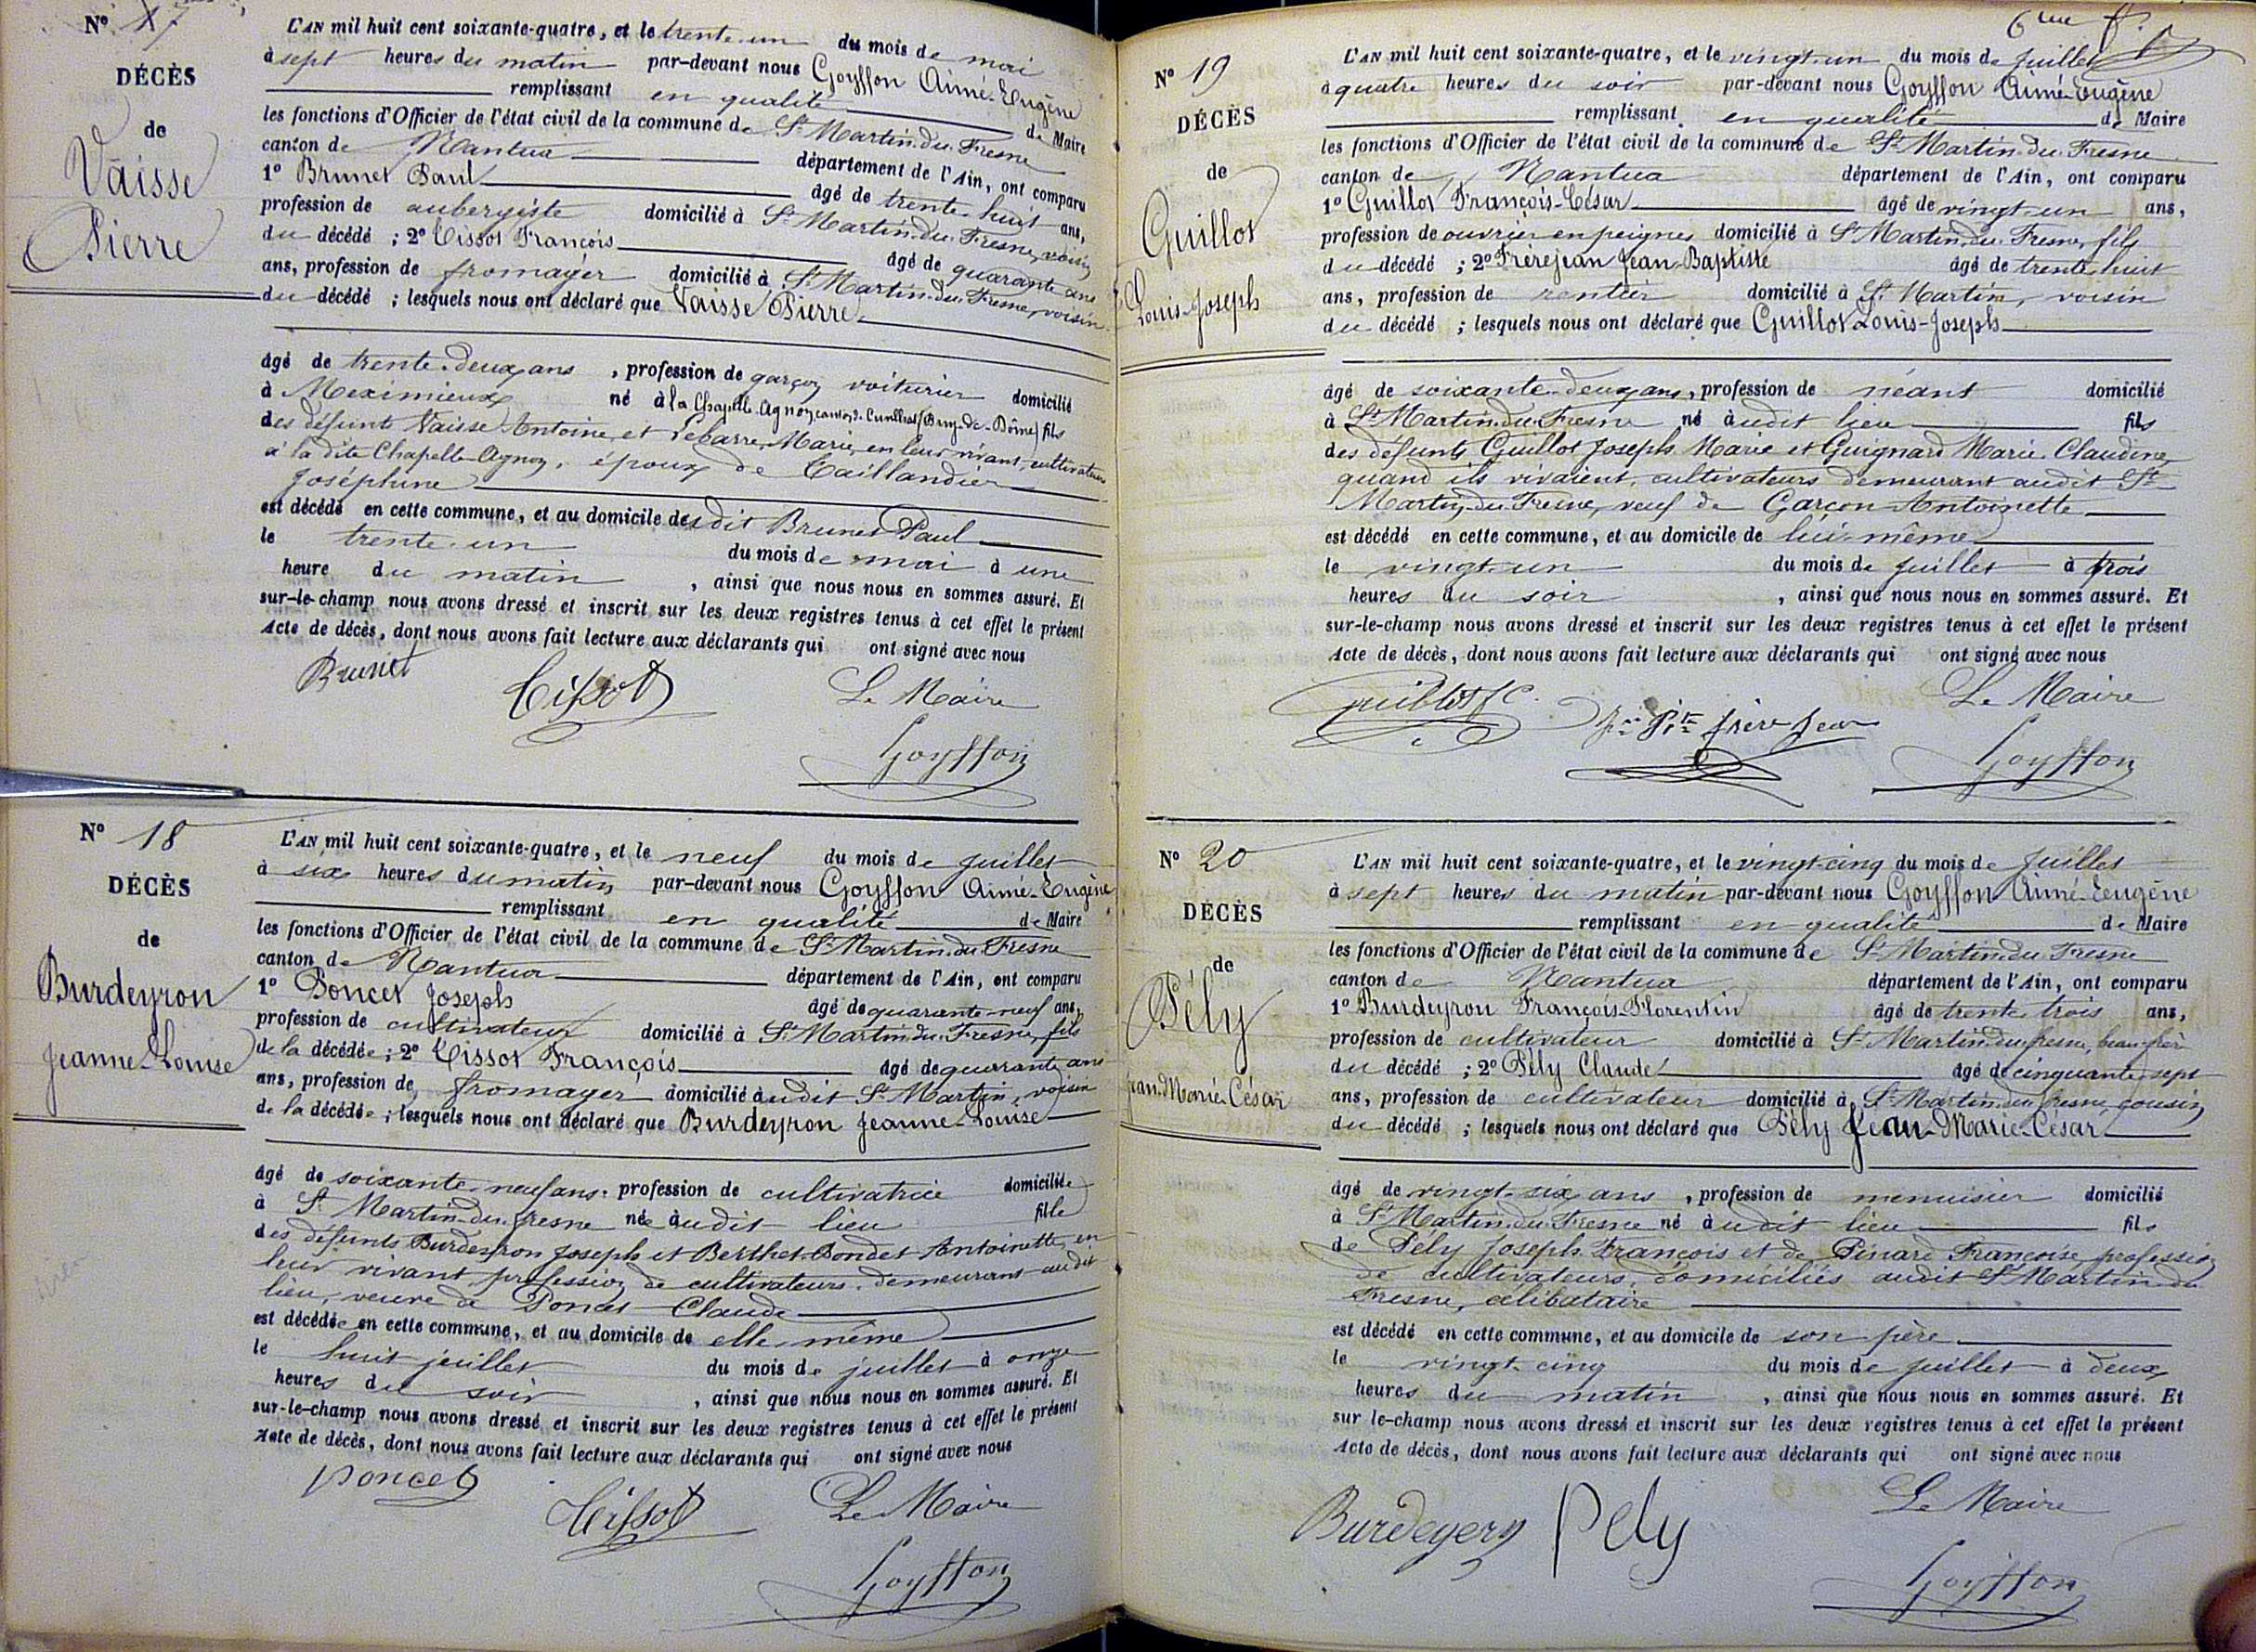 Nº 17
DÉCÈS
de
Vaisse
Pierre
L'AN mil huit cent soixante-quatre, et le trente-un du mois de mai
à sept heures du matin par-devant nous Goyffon Aimé-Eugène
remplissant en qualité de Maire
les fonctions d'Officier de l'état civil de la commune de St Martin-du-Fresne
canton de Nantua département de l'Ain, ont comparu
1º Brunet Paul âgé de trente-huit ans,
profession de aubergiste domicilié à St Martin-du-Fresne, voisin
du décédé ; 2º Tissot François âgé de quarante ans
ans, profession de fromager domicilié à St Martin-du-Fresne, voisin
du décédé ; lesquels nous ont déclaré que Vaisse Pierre
âgé de trente-deux ans, profession de garçon voiturier domicilié
à Meximieux né à la Chapelle-Agnon, canton de Cunlhat (Puy-de-Dôme) fils
des défunts Vaisse Antoine, et Marie, en leur vivant, cultivateurs
à la dite Chapelle-Agnon, époux de Taillandier
Joséphine
est décédé en cette commune, et au domicile dudit Brunet Paul
le trente-un du mois de mai à une
heure du matin, ainsi que nous nous en sommes assuré. Et
sur-le-champ nous avons dressé et inscrit sur les deux registres tenus à cet effet le présent
Acte de décès, dont nous avons fait lecture aux déclarants qui ont signé avec nous
Brunet Tissot Le Maire
Goyffon
Nº 18
DÉCÈS
de
Burdeyron
Jeanne-Louise
L'AN mil huit cent soixante-quatre, et le neuf du mois de juillet
à six heures du matin par-devant nous Goyffon Aimé-Eugène
remplissant en qualité de Maire
les fonctions d'Officier de l'état civil de la commune de St Martin-du-Fresne
canton de Nantua département de l'Ain, ont comparu
1º Poncet Joseph âgé de quarante-neuf ans,
profession de cultivateur domicilié à St Martin-du-Fresne, fils
de la décédée ; 2º Tissot François âgé de quarante ans
ans, profession de fromager domicilié audit St Martin, voisin
de la décédée ; lesquels nous ont déclaré que Burdeyron Jeanne-Louise
âgé de soixante-neuf ans, profession de cultivatrice domiciliée
à St Martin-du-Fresne née audit lieu fille
des défunts Burdeyron Joseph et Berthet-Bondet Antoinette, en
leur vivant profession de cultivateurs, demeurant audit
lieu, veuve de Poncet Claude
est décédée en cette commune, et au domicile de elle-même
le huit juillet du mois de juillet à onze
heures du soir, ainsi que nous nous en sommes assuré. Et
sur-le-champ nous avons dressé et inscrit sur les deux registres tenus à cet effet le présent
Acte de décès, dont nous avons fait lecture aux déclarants qui ont signé avec nous
Poncet Tissot Le Maire
Goyffon
6me f.
Nº 19
DÉCÈS
de
Guillot
Louis-Joseph
L'AN mil huit cent soixante-quatre, et le vingt-un du mois de juillet
à quatre heures du soir par-devant nous Goyffon Aimé-Eugène
remplissant en qualité de Maire
les fonctions d'Officier de l'état civil de la commune de St Martin-du-Fresne
canton de Nantua département de l'Ain, ont comparu
1º Guillot François-César âgé de vingt-un ans,
profession de ouvrier en peignes domicilié à St Martin-du-Fresne, fils
du décédé ; 2º Frèrejean Jean-Baptiste âgé de trente-huit
ans, profession de rentier domicilié à St Martin, voisin
du décédé ; lesquels nous ont déclaré que Guillot Louis-Joseph
âgé de soixante-deux ans, profession de néant domicilié
à St Martin-du-Fresne né audit lieu fils
des défunts Guillot Joseph-Marie et Guignard Marie-Claudine,
quand ils vivaient, cultivateurs demeurant audit St
Martin-du-Fresne, veuf de Garçon Antoinette
est décédé en cette commune, et au domicile de lui-même
le vingt-un du mois de juillet à trois
heures du soir, ainsi que nous nous en sommes assuré. Et
sur-le-champ nous avons dressé et inscrit sur les deux registres tenus à cet effet le présent
Acte de décès, dont nous avons fait lecture aux déclarants qui ont signé avec nous
Guillot fc. Jn Bte frère Jean Le Maire
Goyffon
Nº 20
DÉCÈS
de
Pély
Jean-Marie-César
L'AN mil huit cent soixante-quatre, et le vingt-cinq du mois de juillet
à sept heures du matin par-devant nous Goyffon Aimé-Eugène
remplissant en qualité de Maire
les fonctions d'Officier de l'état civil de la commune de St Martin-du-Fresne
canton de Nantua département de l'Ain, ont comparu
1º Burdeyron François-Florentin âgé de trente-trois ans,
profession de cultivateur domicilié à St Martin-du-fresne, beau-frère
du décédé ; 2º Pély Claude âgé de cinquante-sept
ans, profession de cultivateur domicilié à St Martin-du-fresne, cousin
du décédé ; lesquels nous ont déclaré que Pély Jean-Marie-César
âgé de vingt-six ans, profession de menuisier domicilié
à St Martin-du-Fresne né audit lieu fils
de Pély Joseph-François et de Pinard Françoise, profession
de cultivateurs, domiciliés audit St Martin-du
Fresne, célibataire
est décédé en cette commune, et au domicile de son père
le vingt-cinq du mois de juillet à deux
heures du matin, ainsi que nous nous en sommes assuré. Et
sur le-champ nous avons dressé et inscrit sur les deux registres tenus à cet effet le présent
Acte de décès, dont nous avons fait lecture aux déclarants qui ont signé avec nous
Burdeyron Pely Le Maire
Goyffon